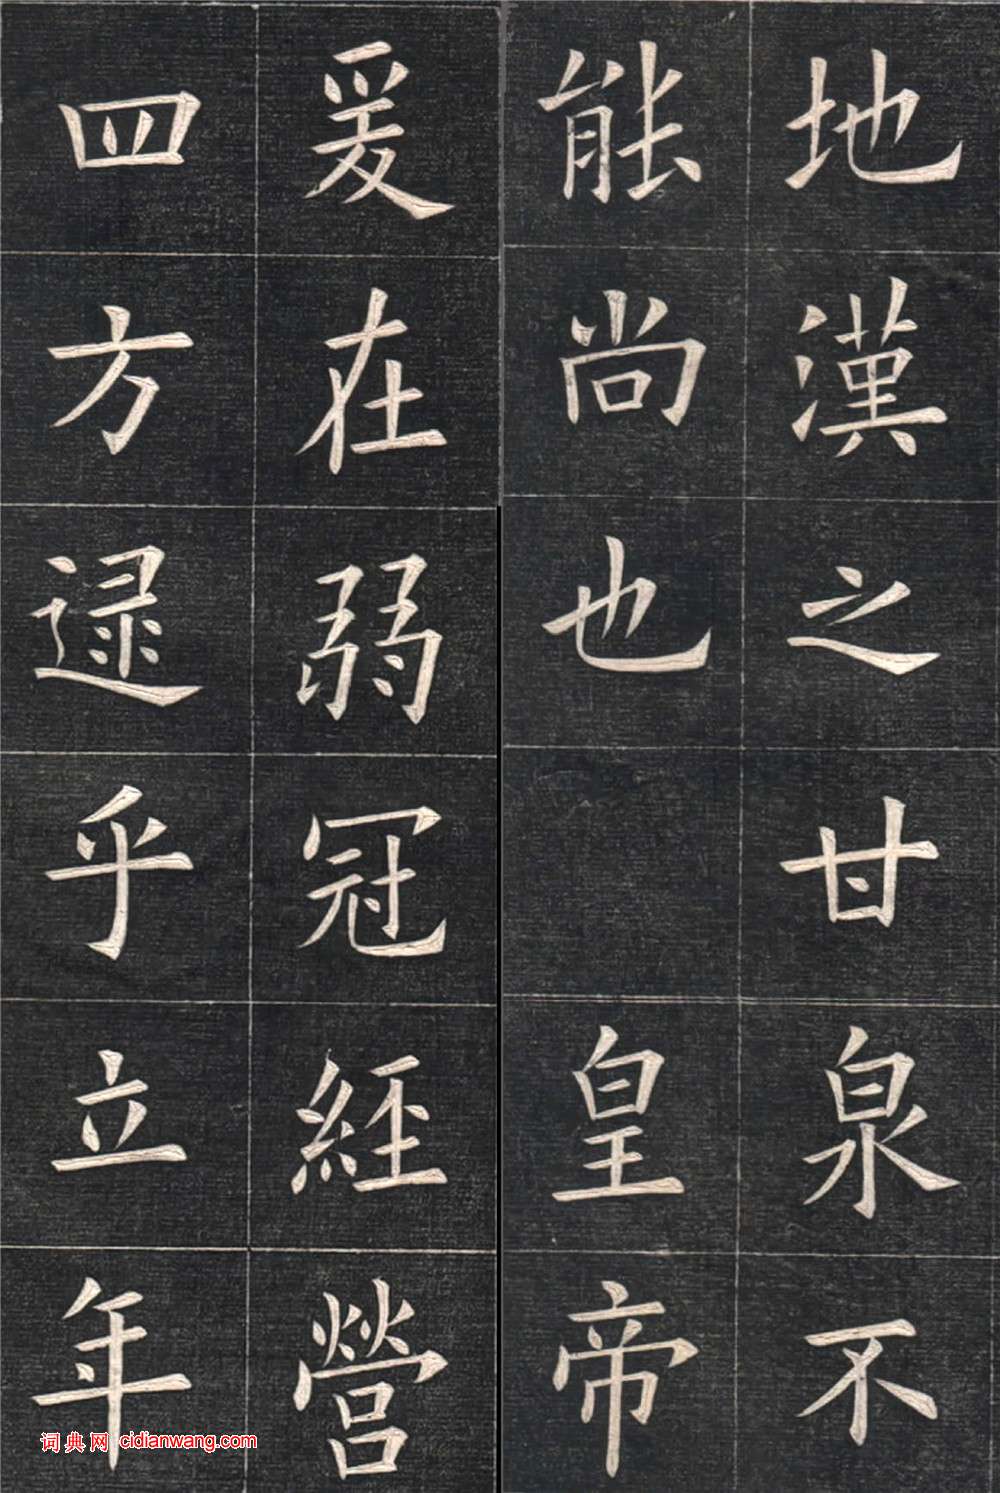 地漢之甘泉不
能尚也皇帝
爰在弱冠經營
四方逯乎立年
词典网 cidianwang.com